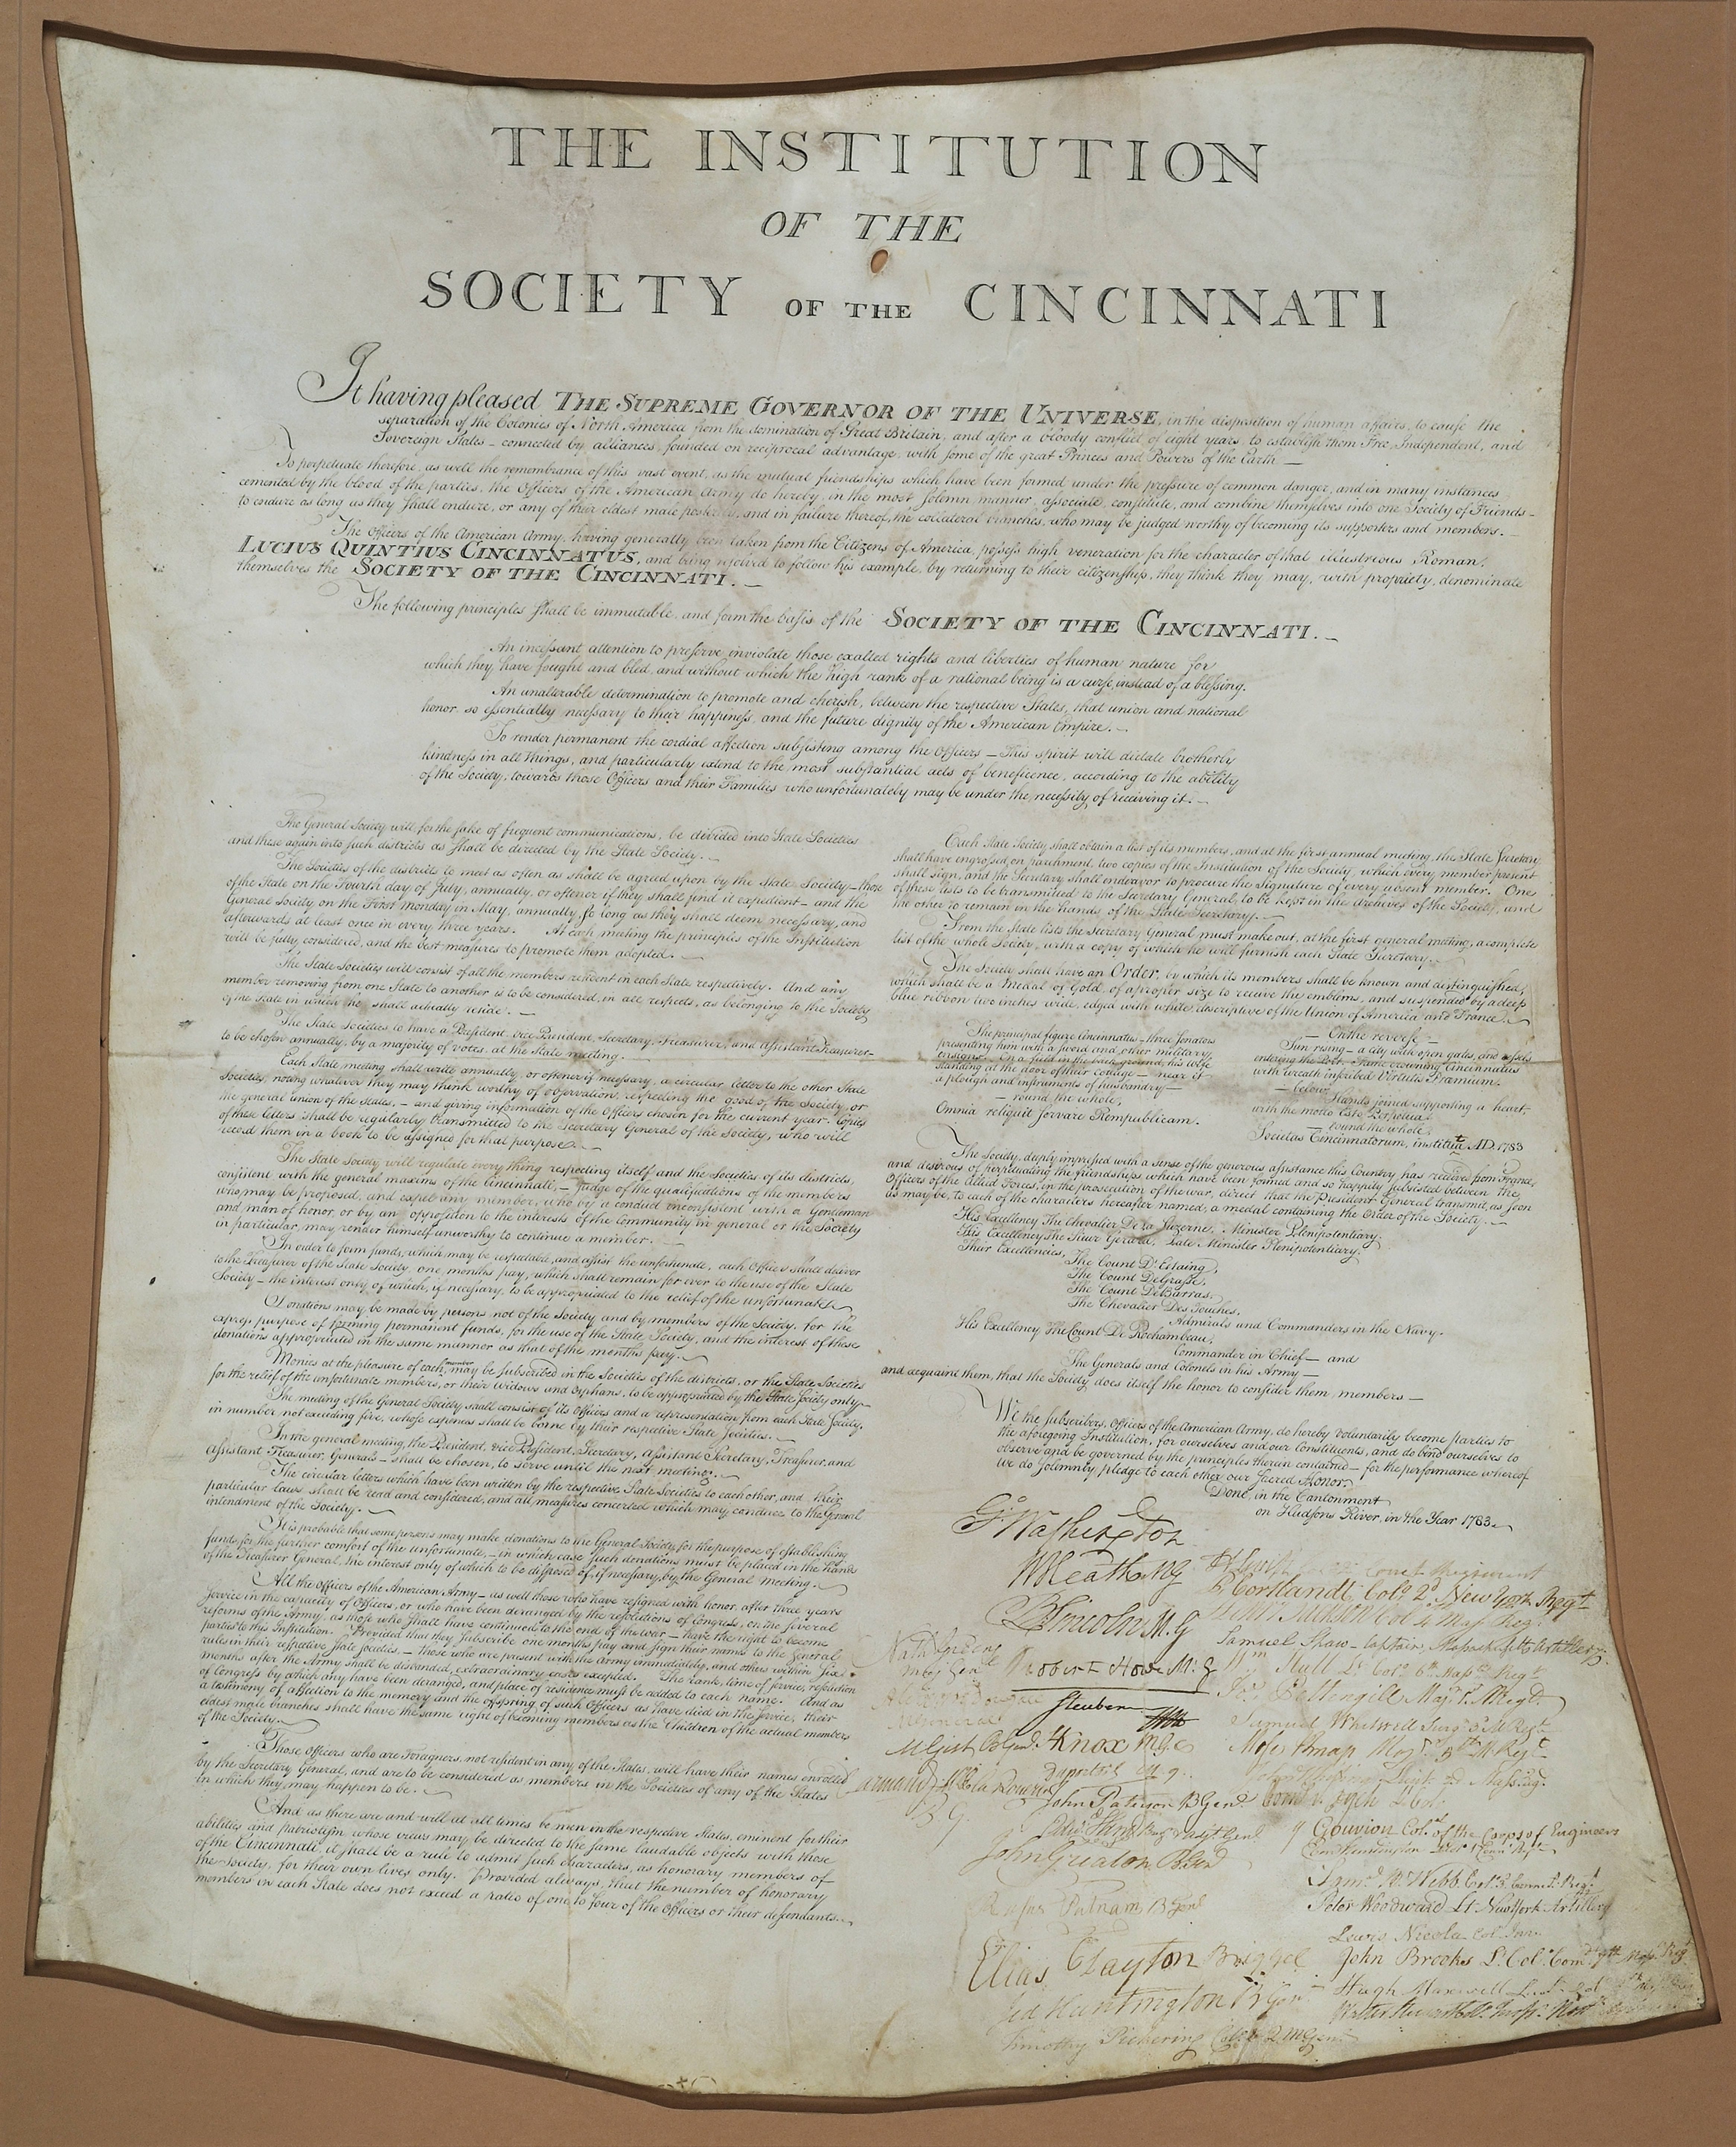 THE INSTITUTION
OF THE
SOCIETY OF THE CINCINNATI
It having pleased THE SUPREME GOVERNOR OF THE UNIVERSE, in the disposition of human affairs, to cause the
separation of the Colonies of North America from the domination of Great Britain, and after a bloody conflict of eight years, to establish them Free, Independent, and
Sovereign States – connected by alliances, founded on reciprocal advantage, with some of the great Princes and Powers of the Earth —
To perpetuate therefore, as well the remembrance of this vast event, as the mutual friendships which have been formed under the pressure of common danger, and in many instances
cemented by the blood of the parties, the Officers of the American Army do hereby, in the most solemn manner, associate, constitute, and combine themselves into one Society of Friends –
to endure as long as they shall endure, or any of their eldest male posterity, and in failure thereof, the collateral branches, who may be judged worthy of becoming its supporters and members. –
The Officers of the American Army, having generally been taken from the Citizens of America, possess high veneration for the character of that illustrious Roman,
LUCIUS QUINTIUS CINCINNATUS, and being resolved to follow his example, by returning to their citizenship, they think they may, with propriety, denominate
themselves the SOCIETY OF THE CINCINNATI. —
The following principles shall be immutable, and form the basis of the SOCIETY OF THE CINCINNATI. –
An incessant attention to preserve inviolate those exalted rights and liberties of human nature for
which they have fought and bled, and without which the high rank of a rational being is a curse, instead of a blessing.
An unalterable determination to promote and cherish, between the respective States, that union and national
honor, so essentially necessary to their happiness, and the future dignity of the American Empire. –
To render permanent the cordial affection subsisting among the Officers – This spirit will dictate brotherly
kindness in all things, and particularly extend to the most substantial acts of beneficence, according to the ability
of the Society, towards those Officers and their Families who unfortunately may be under the necessity of receiving it. –
The General Society will for the sake of frequent communications, be divided into State Societies
and these again into such districts as shall be directed by the State Society. –
The Societies of the districts to meet as often as shall be agreed upon by the State Society – those
of the State on the Fourth day of July, annually, or oftener if they shall find it expedient – and the
General Society on the First Monday in May, annually, so long as they shall deem necessary, and
afterwards at least once in every three years. At each meeting the principles of the Institution
will be fully considered, and the best measures to promote them adopted. —
The State Societies will consist of all the members resident in each State respectively. And any
member removing from one State to another is to be considered, in all respects, as belonging to the Society
of the State in which he shall actually reside. —
The State Societies to have a President, vice President, Secretary, Treasurer, and assistant Treasurer –
to be chosen annually, by a majority of votes, at the State meeting.
Each State meeting shall write annually, or oftener if necessary, a circular letter to the other State
Societies, noting whatever they may think worthy of observation, respecting the good of the Society, or
the general union of the States, – and giving information of the Officers chosen for the current year. Copies
of these letters shall be regularly transmitted to the Secretary General of the Society, who will
record them in a book to be assigned for that purpose. —
The State Society will regulate every thing respecting itself and the Societies of its districts,
consistent with the general maxims of the Cincinnati, – judge of the qualifications of the members
who may be proposed, and expel any member, who by a conduct inconsistent with a Gentleman
and man of honor, or by an opposition to the interests of the Community in general or the Society
in particular, may render himself unworthy to continue a member. —
In order to form funds, which may be respectable, and assist the unfortunate, each Officer shall deliver
to the Treasurer of the State Society, one months pay, which shall remain for ever to the use of the State
Society – the interest only of which, if necessary, to be appropriated to the relief of the unfortunate. —
Donations may be made by persons not of the Society and by members of the Society, for the
express purpose of forming permanent funds, for the use of the State Society, and the interest of these
donations appropriated in the same manner as that of the months pay. —
Monies at the pleasure of each member may be subscribed in the Societies of the districts, or the State Societies
for the relief of the unfortunate members, or their widows and orphans, to be appropriated by the State Society only –
The meeting of the General Society shall consist of its Officers and a representation from each State Society,
in number not exceeding five, whose expences shall be borne by their respective State Societies. —
In the general meeting, the President, vice President, Secretary, Assistant Secretary, Treasurer, and
Assistant Treasurer, Generals – shall be chosen, to serve until the next meeting. —
The circular letters which have been written by the respective State Societies to each other, and their
particular laws shall be read and considered, and all measures concerted which may conduce to the General
intendment of the Society. —
It is probable that some persons may make donations to the General Society, for the purpose of establishing
funds, for the further comfort of the unfortunate, – in which case such donations must be placed in the hands
of the Treasurer General, the interest only of which to be disposed of, if necessary, by the General meeting. —
All the Officers of the American Army – as well those who have resigned with honor, after three years
service in the capacity of Officers, or who have been deranged by the resolutions of Congress, on the several
reforms of the Army, as those who shall have continued to the end of the war – have the right to become
parties to this Institution. Provided that they subscribe one months pay and sign their names to the General
rules in their respective State Societies, – those who are present with the Army immediately, and others within six
months after the Army shall be disbanded, extraordinary cases excepted. The rank, time of service, resolution
of Congress by which any have been deranged, and place of residence must be added to each name. And as
a testimony of affection to the memory and the offspring of such Officers as have died in the service, their
eldest male branches shall have the same right of becoming members as the Children of the actual members
of the Society. —
Those Officers who are Foreigners, not resident in any of the States, will have their names enrolled
by the Secretary General, and are to be considered as members in the Societies of any of the States
in which they may happen to be. —
And as there are and will at all times be men in the respective States, eminent for their
abilities and patriotism whose views may be directed to the same laudable objects with those
of the Cincinnati, it shall be a rule to admit such characters, as honorary members of
the Society, for their own lives only. Provided always, that the number of honorary
members in each State does not exceed a ratio of one to four of the Officers or their descendants. —
Each State Society shall obtain a list of its members, and at the first annual meeting, the State Secretary
shall have engrossed, on parchment, two copies of the Institution of the Society, which every member present
shall sign, and the Secretary shall endeavor to procure the signature of every absent member. One
of these lists to be transmitted to the Secretary General, to be kept in the archives of the Society, and
the other to remain in the hands of the State Secretary. —
From the State lists the Secretary General must make out, at the first general meeting, a complete
list of the whole Society, with a copy of which he will furnish each State Secretary. —
The Society shall have an Order, by which its members shall be known and distinguished,
which shall be a Medal of Gold, of a proper size to receive the emblems, and suspended by a deep
blue ribbon two inches wide, edged with white, descriptive of the Union of America and France. —
The principal figure Cincinnatus – three Senators
presenting him with a sword and other military
ensigns. On a field in the back ground, his wife
standing at the door of their cottage – near it
a plough and instruments of husbandry –
– round the whole,
Omnia reliquit servare Rempublicam.
— On the reverse –
Sun rising – a city with open gates, and vessels
entering the Port – Fame crowning Cincinnatus
with wreath inscribed Virtutis Præmium.
– below,
Hands joined supporting a heart,
with the motto Esto Perpetua.
– round the whole,
Societas Cincinnatorum, instituta AD. 1783
The Society, deeply impressed with a sense of the generous assistance this Country has received from France,
and desirous of perpetuating the friendships, which have been formed and so happily subsisted between the
Officers of the allied Forces, in the prosecution of the war, direct that the President General transmit, as soon
as may be, to each of the characters hereafter named, a medal containing the Order of the Society. —
His Excellency The Chevalier De la Luzerne, Minister Plenipotentiary.
His Excellency The Sieur Gerard, Late Minister Plenipotentiary.
Their Excellencies,
The Count D'Estaing,
The Count DeGrasse,
The Count DeBarras.
The Chevalier Des Touches.
Admirals and Commanders in the Navy.
His Excellency The Count De Rochambeau,
Commander in Chief – and
The Generals and Colonels in his Army –
and acquaint them, that the Society does itself the honor to consider them, members –
We the subscribers, Officers of the American Army, do hereby voluntarily become parties to
the aforegoing Institution, for ourselves and our Constituents, and do bind ourselves to
observe and be governed by the principles therein contained – for the performance whereof
we do solemnly pledge to each other our Sacred Honor.
Done, in the Cantonment
on Hudsons River, in the Year 1783. —
Go Washington
W Heath M G
B Lincoln M. G
Nath Greene
Robert Howe M. G
Steuben
M Gist B Gen.
H Knox M. G.
Armand
B. G
John Paterson B Gen.
John Greaton B Gen
Rufus Putnam B Gen
Elias Dayton
Jed Huntington B Gen
Timothy Pickering
P. Cortlandt Colo. 2d New York Regt
Samuel Shaw – Captain,
Wm Hull Lt. Col.
Jos. Pettengill Maj.
Samuel Whitwell Surg.
Moses Knap Maj.
Gouvion Col. of the Corps of Engineers
Saml. B. Webb Col. 3. Connt. Regt
Peter Woodward Lt. New York Artillery
Lewis Nicola Col. Inv.
John Brooks Lt. Col. Comt. 7th Mass. Reg
Hugh Maxwell
Walter Stewart